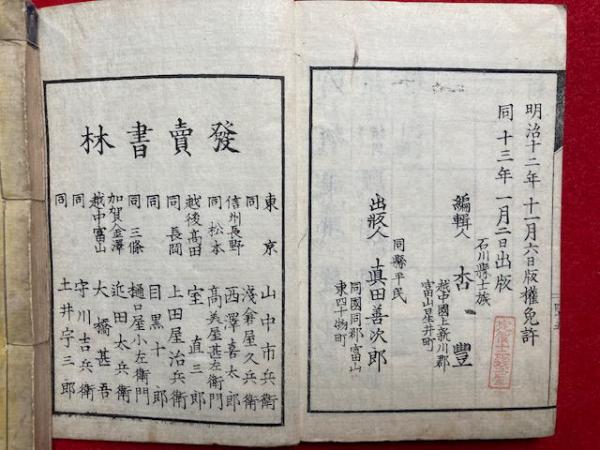 明治十二年十一月六日版權免許
同十三年一月二日出版
石川縣士族
編輯人 杏 豊
越中國上新川郡
富山星井町
同縣平民
出版人 眞田善次郎
同國同郡富山
東四十物町
發賣書林
東京 山中市兵衛
同 淺倉屋久兵衛
信州長野 西澤喜太郎
同松本 高美屋甚左衛門
越後高田 室直三郎
同長岡 上田屋治兵衛
同 目黒十郎
同三條 樋口屋小左衛門
加賀金澤 近田太兵衛
越中富山 大橋甚吾
同 守川吉兵衛
同 土井宇三郎